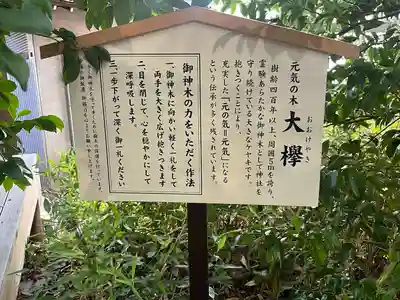 元気の木
大欅
おおけやき
樹齢四百年以上、周囲5mを誇り、
霊験あらたかな御神木として神社を
守り続けている大きなケヤキです。
抱きつくことにより、
充実した「元の気＝元気」になる
という伝承が多く残されています。
御神木の力をいただく作法
一、御神木に向かい軽く一礼をして
両手を大きく広げ抱きつきます
二、目を閉じて、心を穏やかにして
深呼吸します。
三、一歩下がって深く御一礼ください